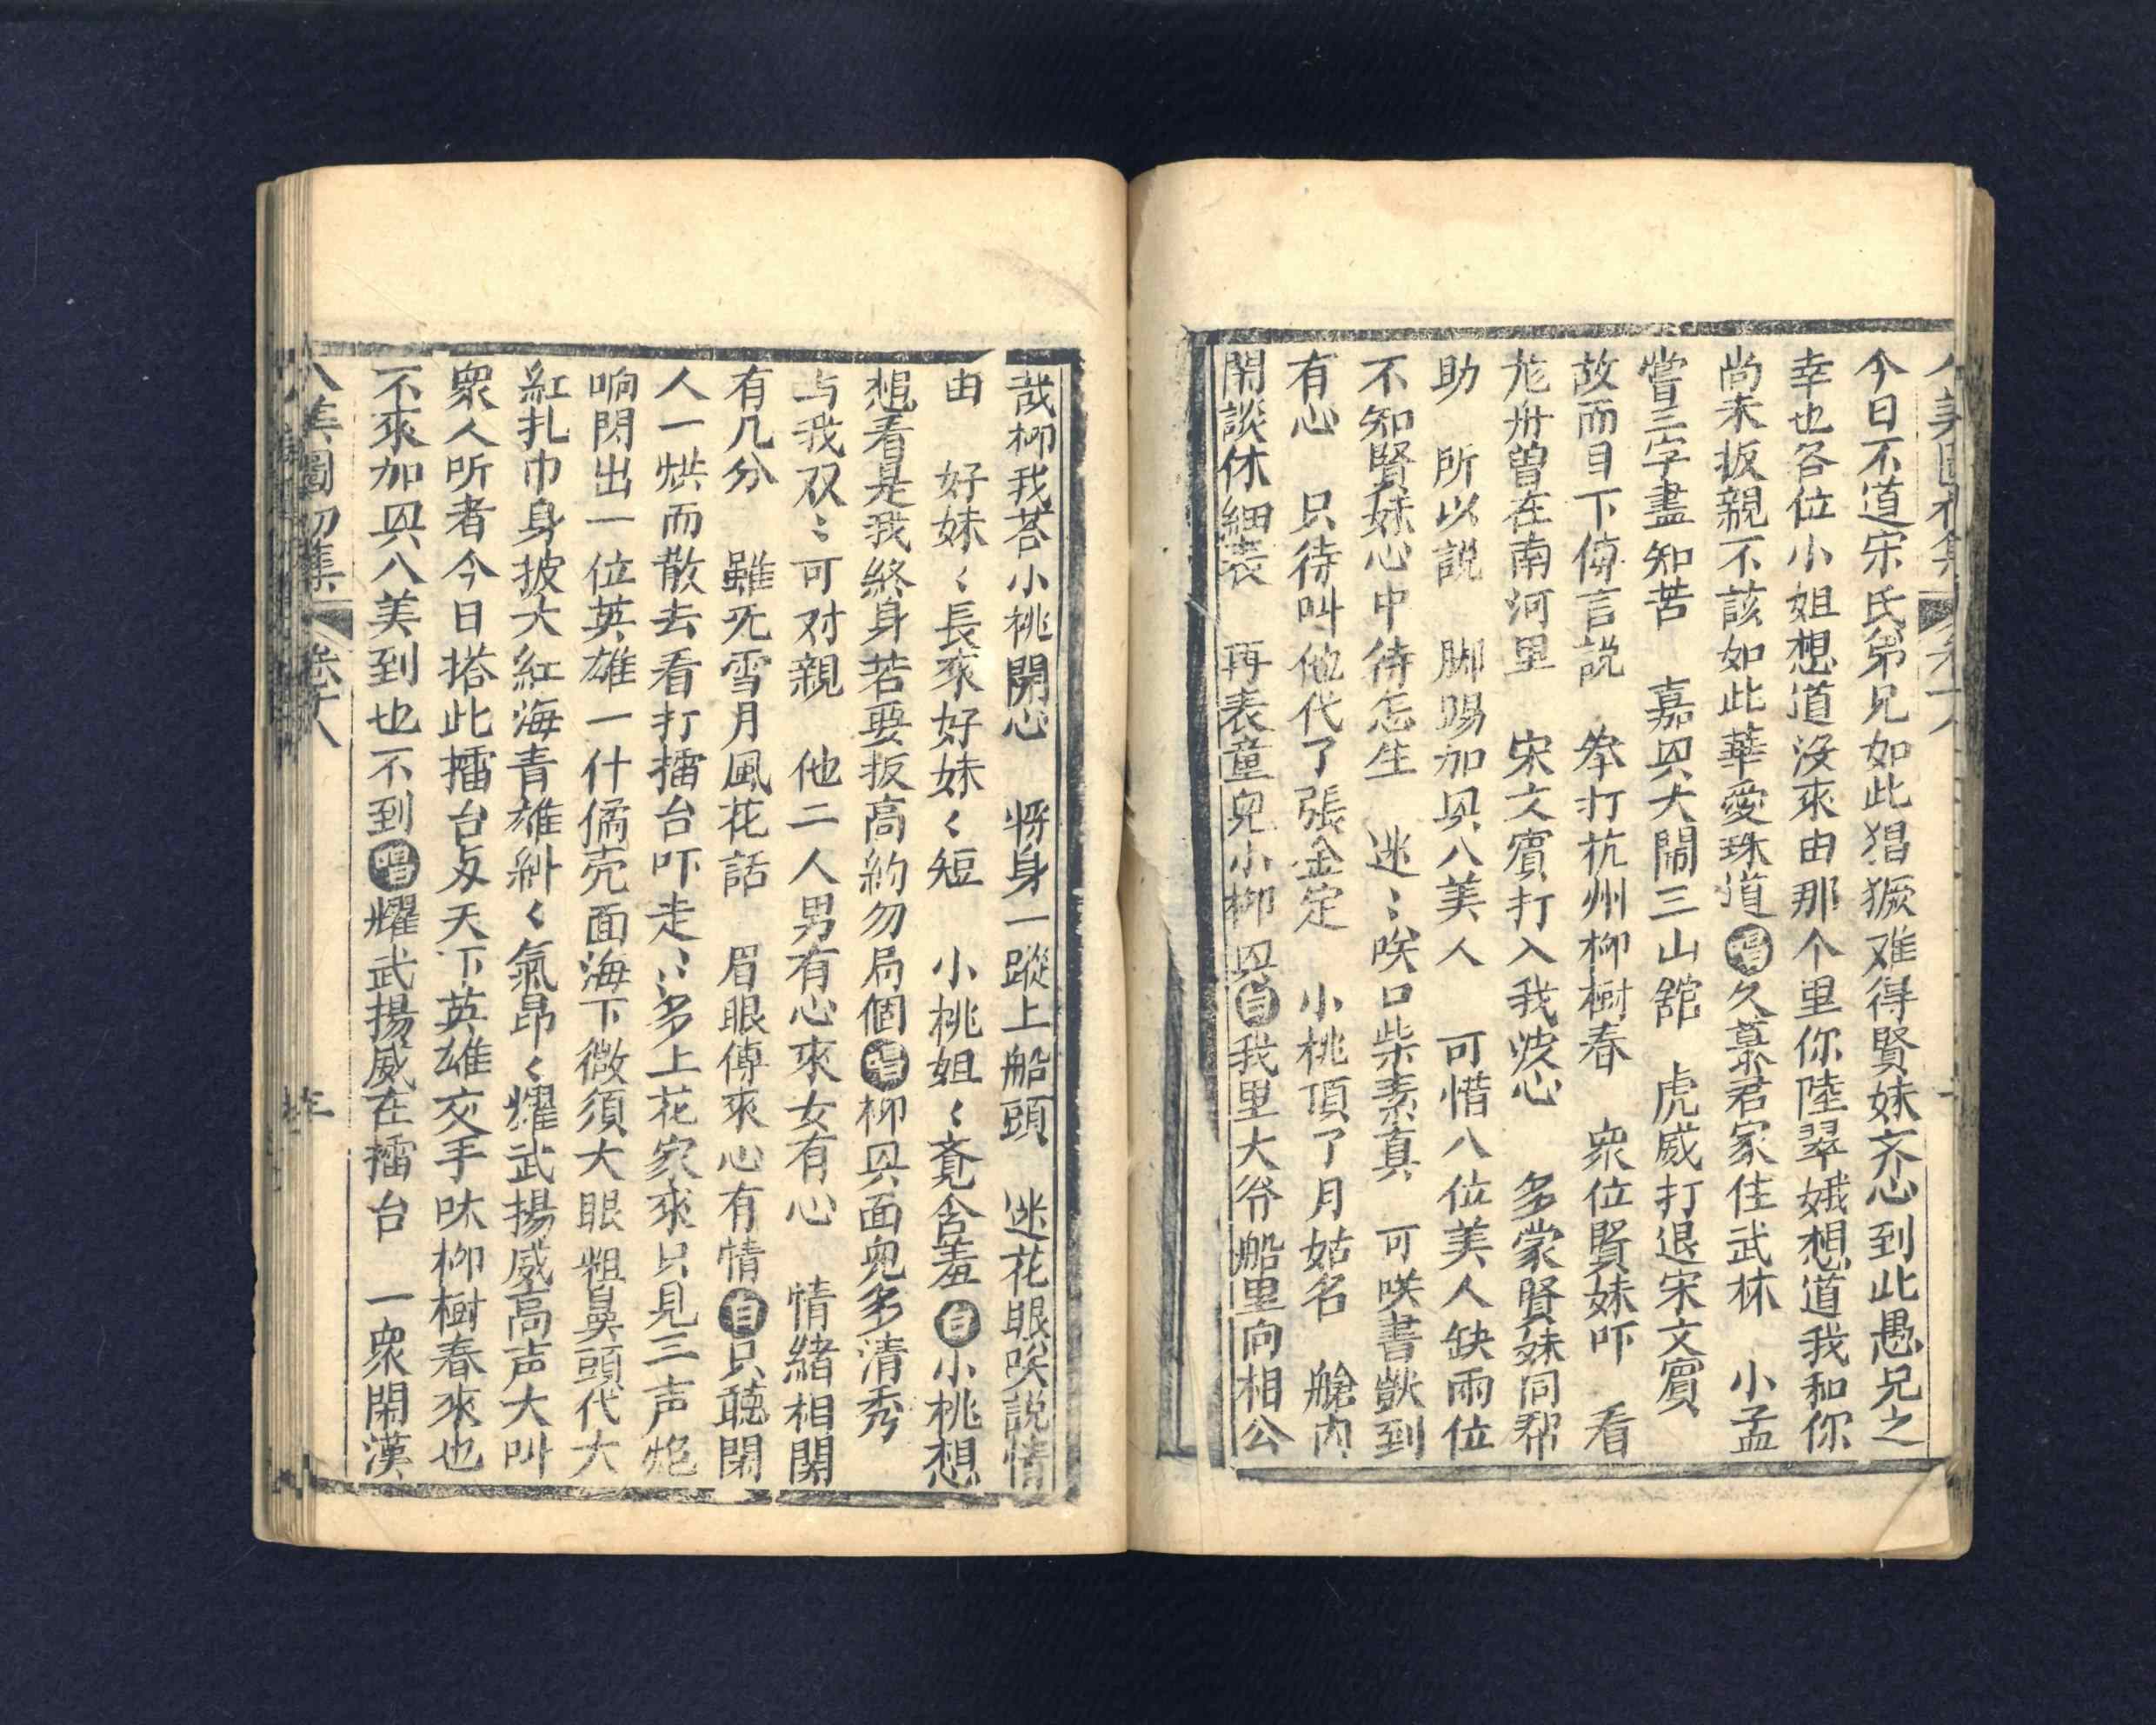 八美圖初集 卷十八
今日不道宋氏弟兄如此猖獗难得賢妹齐心到此愚兄之
幸也各位小姐想道沒來由那个里你陸翠娥想道我和你
尚未扳親不該如此華愛珠道唱久慕君家佳武林 小孟
嘗三字盡知苦 嘉㒷大鬧三山舘 虎威打退宋文賓
故而目下傳言說 拳打杭州柳樹春 衆位賢妹吓 看
龙舟曽在南河里 宋文賓打入我决心 多蒙賢妹同帮
助 所以說 脚踢加㒷八美人 可惜八位美人缺兩位
不知賢妹心中待怎生 迷〻咲口柴素真 可咲書獃到
有心 只待叫他代了張金定 小桃頂了月姑名 艙內
閑談休細表 再表童兒小柳㒷白我里大爷船里向相公
哉柳我荅小桃開心 将身一蹤上船頭 迷花眼咲説情
由 好妹〻長來好妹〻短 小桃姐〻竟含羞白小桃想
想看是我終身若要扳高約勿局個唱柳㒷面皃多清秀
与我双〻可对親 他二人男有心來女有心 情緒相関
有几分 雖无雪月風花話 眉眼傳來心有情白只聴閑
人一烘而散去看打擂台吓走〻〻多上花家來只見三声炮
响閃出一位英雄一什偹壳面海下微須大眼粗鼻頭代大
紅扎巾身披大紅海青雄糾〻氣昂〻耀武揚威高声大叫
衆人所者今日搭此擂台友天下英雄交手呔柳樹春來也
不來加㒷八美到也不到唱耀武揚威在擂台 一衆閑漢
八美圖初集 卷十八